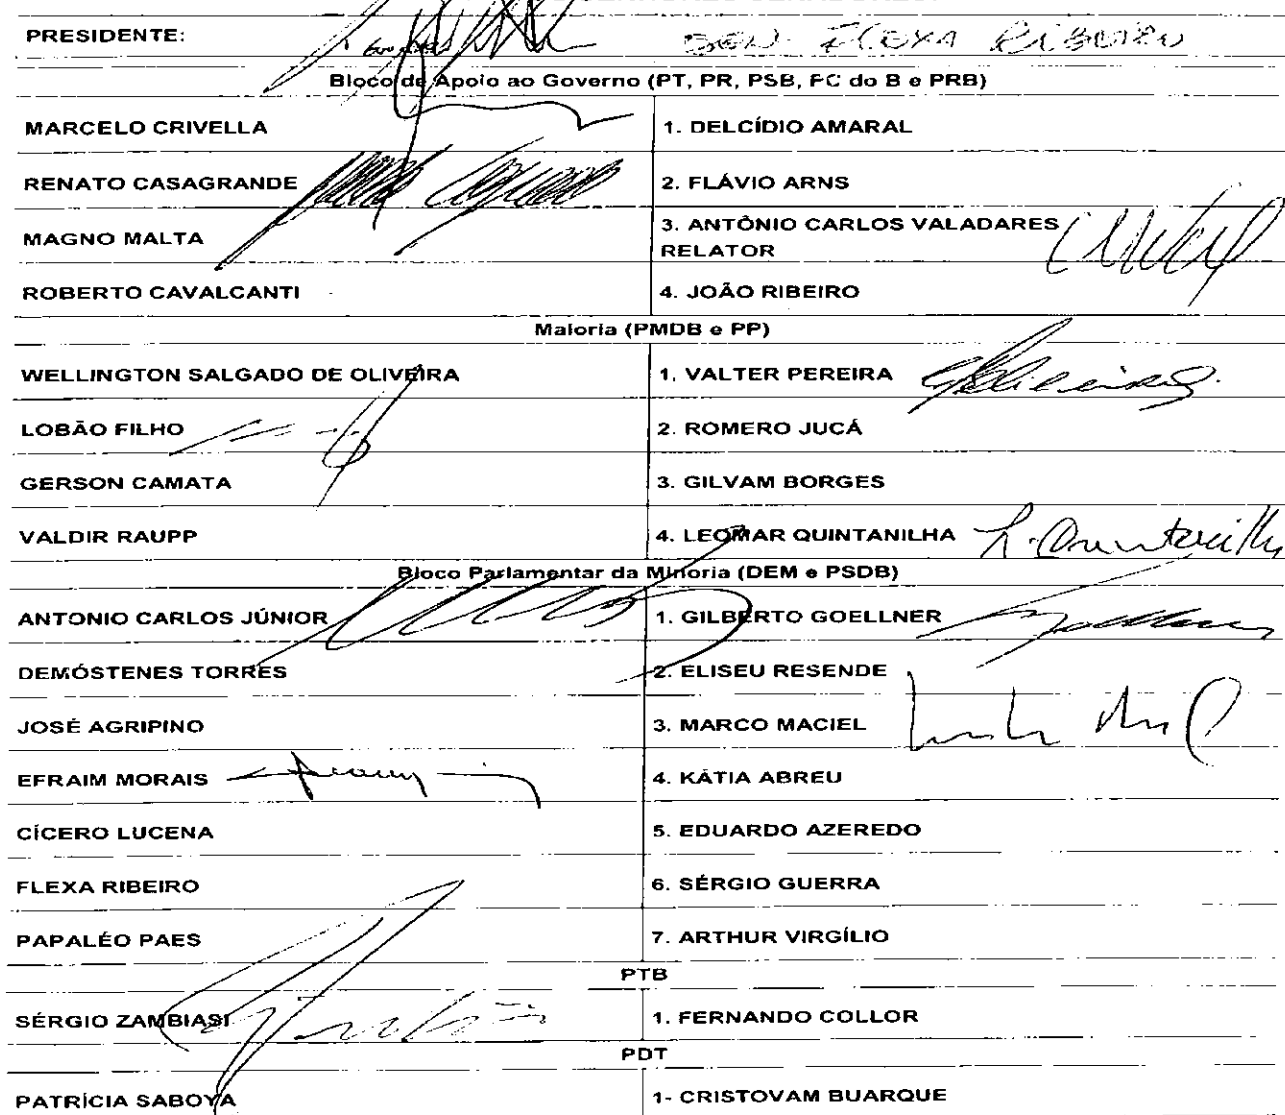 PRESIDENTE: SEN. FLEXA RIBEIRO
Bloco de Apoio ao Governo (PT, PR, PSB, PC do B e PRB)
MARCELO CRIVELLA 1. DELCÍDIO AMARAL
RENATO CASAGRANDE 2. FLÁVIO ARNS
MAGNO MALTA 3. ANTÔNIO CARLOS VALADARES
RELATOR
ROBERTO CAVALCANTI 4. JOÃO RIBEIRO
Maioria (PMDB e PP)
WELLINGTON SALGADO DE OLIVEIRA 1. VALTER PEREIRA
LOBÃO FILHO 2. ROMERO JUCÁ
GERSON CAMATA 3. GILVAM BORGES
VALDIR RAUPP 4. LEOMAR QUINTANILHA L. Quintanilha
Bloco Parlamentar da Minoria (DEM e PSDB)
ANTONIO CARLOS JÚNIOR 1. GILBERTO GOELLNER
DEMÓSTENES TORRES 2. ELISEU RESENDE
JOSÉ AGRIPINO 3. MARCO MACIEL
EFRAIM MORAIS 4. KÁTIA ABREU
CÍCERO LUCENA 5. EDUARDO AZEREDO
FLEXA RIBEIRO 6. SÉRGIO GUERRA
PAPALÉO PAES 7. ARTHUR VIRGÍLIO
PTB
SÉRGIO ZAMBIASI 1. FERNANDO COLLOR
PDT
PATRÍCIA SABOYA 1- CRISTOVAM BUARQUE